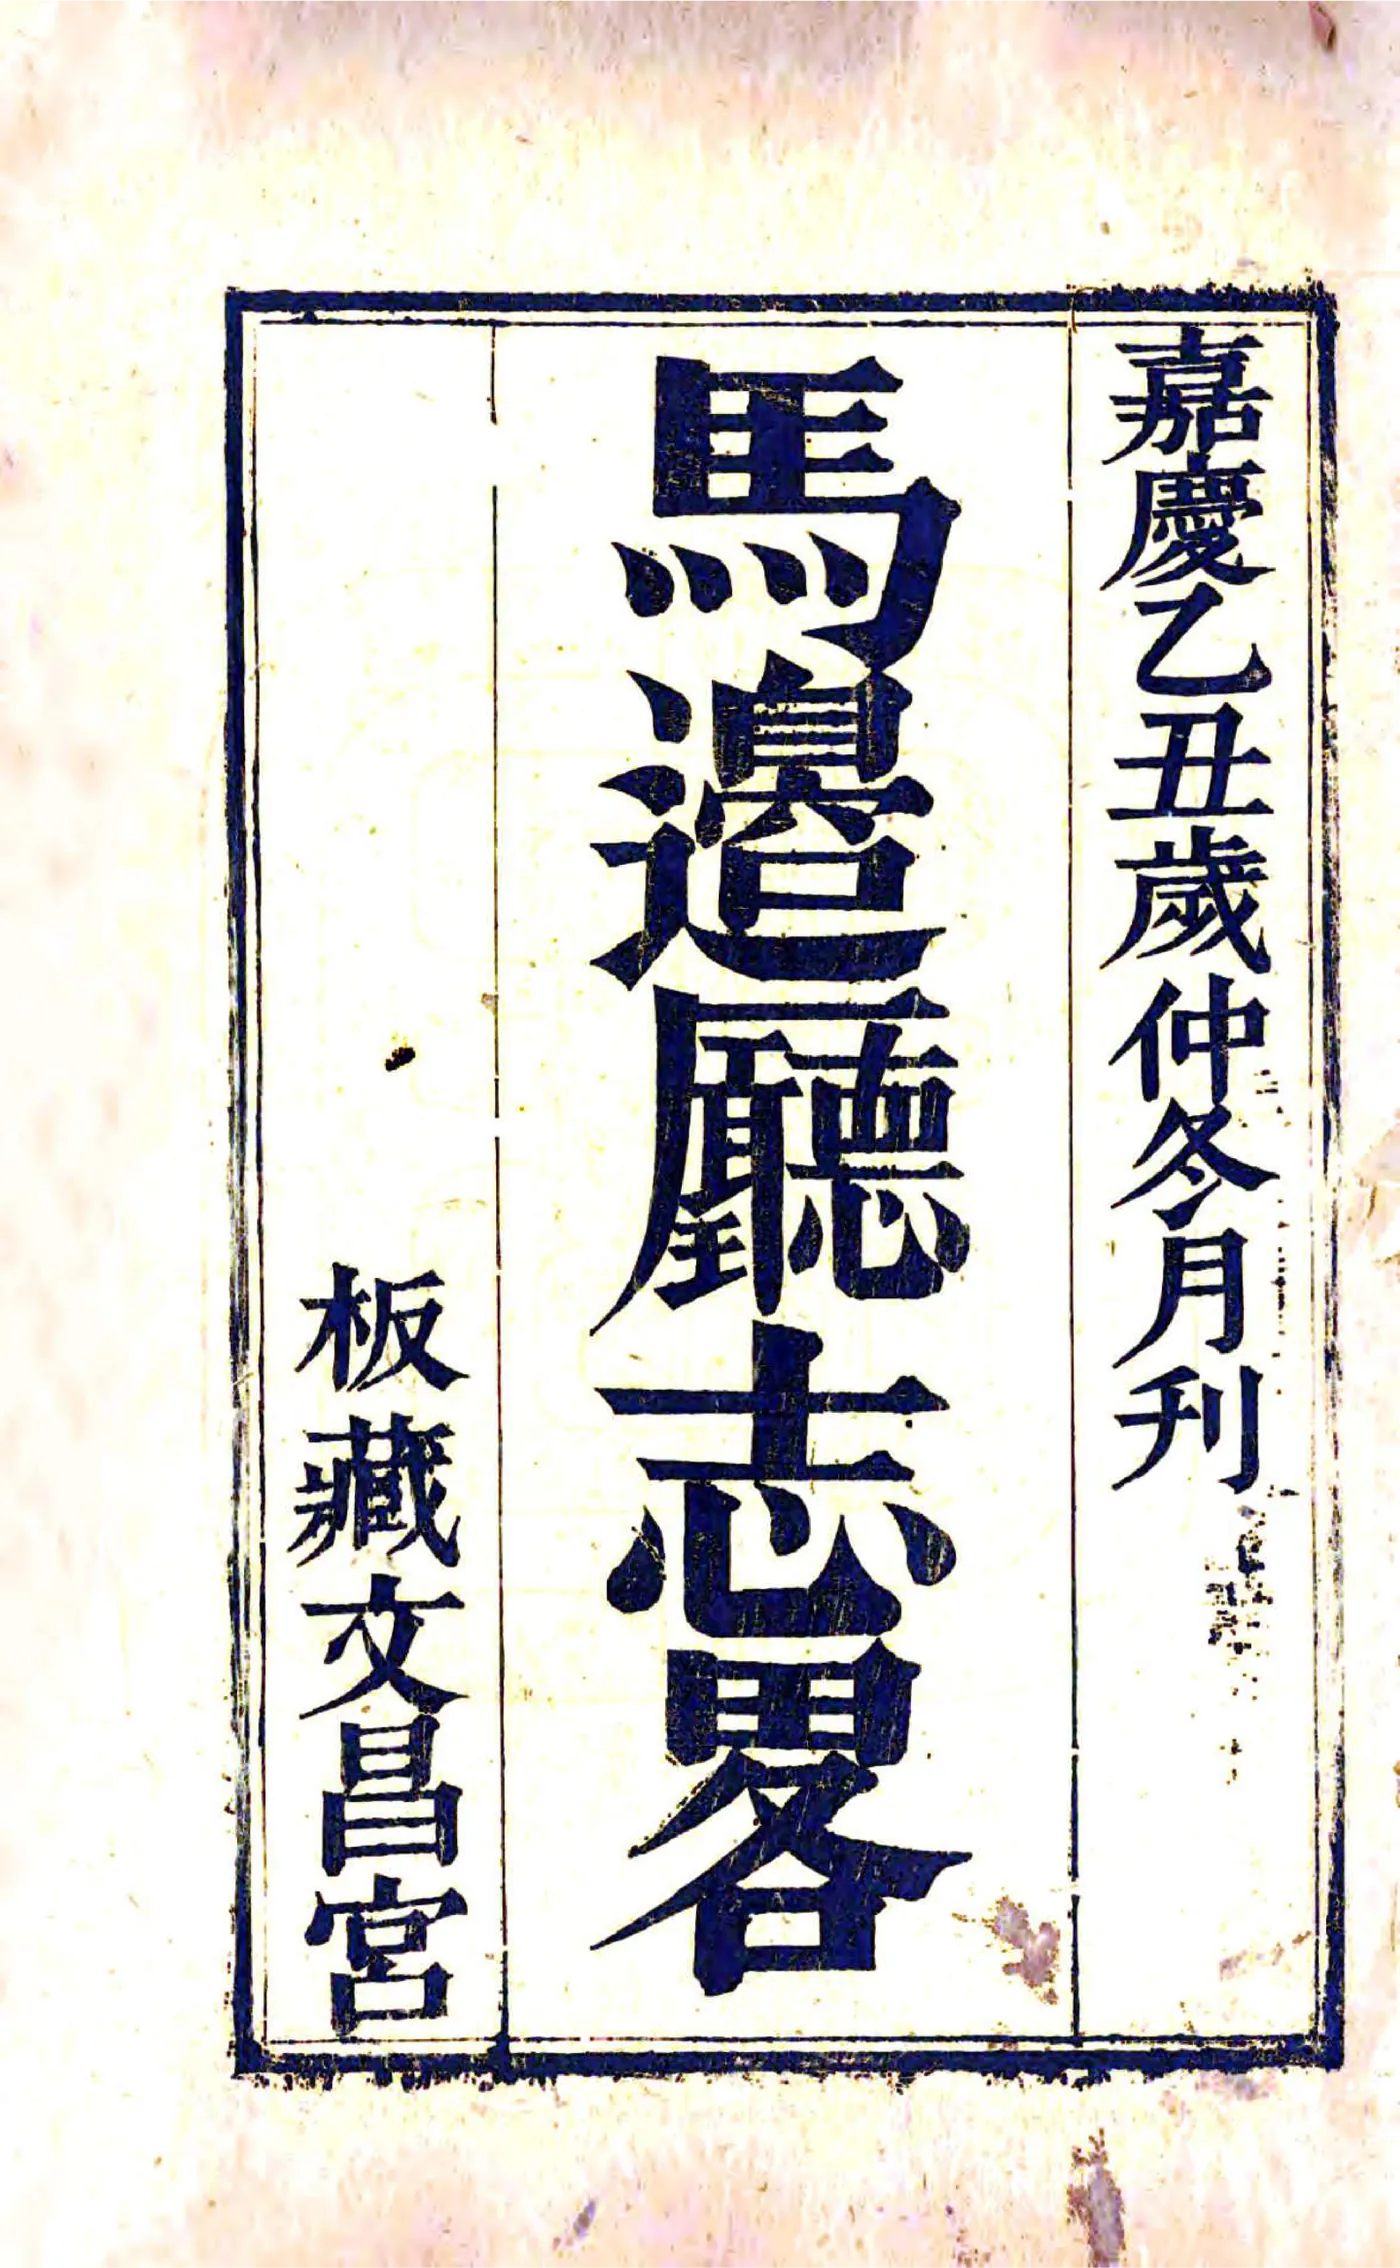 嘉慶乙丑歲仲冬月刊
馬邉廳志畧
板藏文昌宮